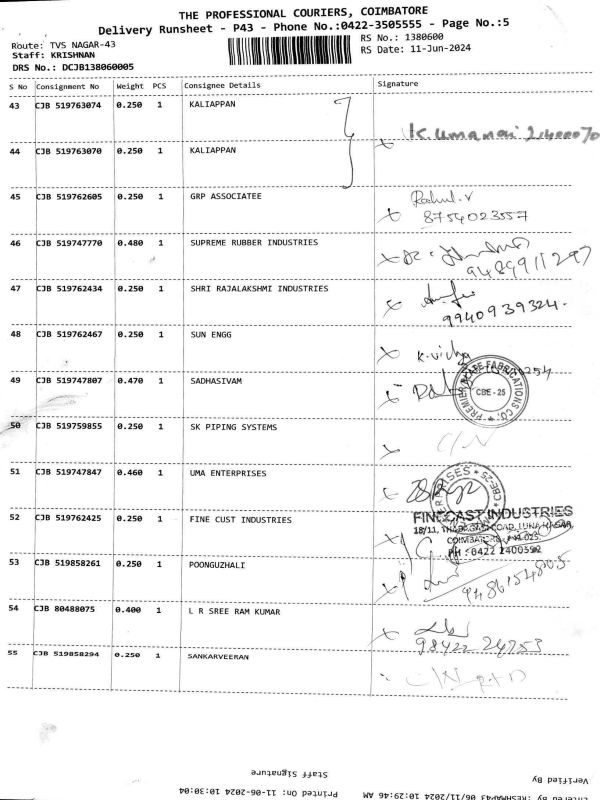 THE PROFESSIONAL COURIERS, COIMBATORE
Delivery Runsheet - P43 - Phone No.:0422-3505555 - Page No.:5
Route: TVS NAGAR-43
Staff: KRISHNAN
DRS No.: DCJB138060005
RS No.: 1380600
RS Date: 11-Jun-2024
S No Consignment No Weight PCS Consignee Details Signature
43 CJB 519763074 0.250 1 KALIAPPAN
44 CJB 519763070 0.250 1 KALIAPPAN
K. Uma
45 CJB 519762605 0.250 1 GRP ASSOCIATEE
Rahul.V
8754023557
46 CJB 519747770 0.480 1 SUPREME RUBBER INDUSTRIES
9489911297
47 CJB 519762434 0.250 1 SHRI RAJALAKSHMI INDUSTRIES
9940939324.
48 CJB 519762467 0.250 1 SUN ENGG
K. Vidhya
49 CJB 519747807 0.470 1 SADHASIVAM
CBE - 25
50 CJB 519759855 0.250 1 SK PIPING SYSTEMS
C/N
51 CJB 519747847 0.460 1 UMA ENTERPRISES
52 CJB 519762425 0.250 1 FINE CUST INDUSTRIES
FINECAST INDUSTRIES
PH : 0422 2400592
53 CJB 519858261 0.250 1 POONGUZHALI
9486154805
54 CJB 80488075 0.400 1 L R SREE RAM KUMAR
98422 24753
55 CJB 519858294 0.250 1 SANKARVEERAN
Staff Signature
Verified By
Printed On: 11-06-2024 10:30:04
06/11/2024 10:29:46 AM